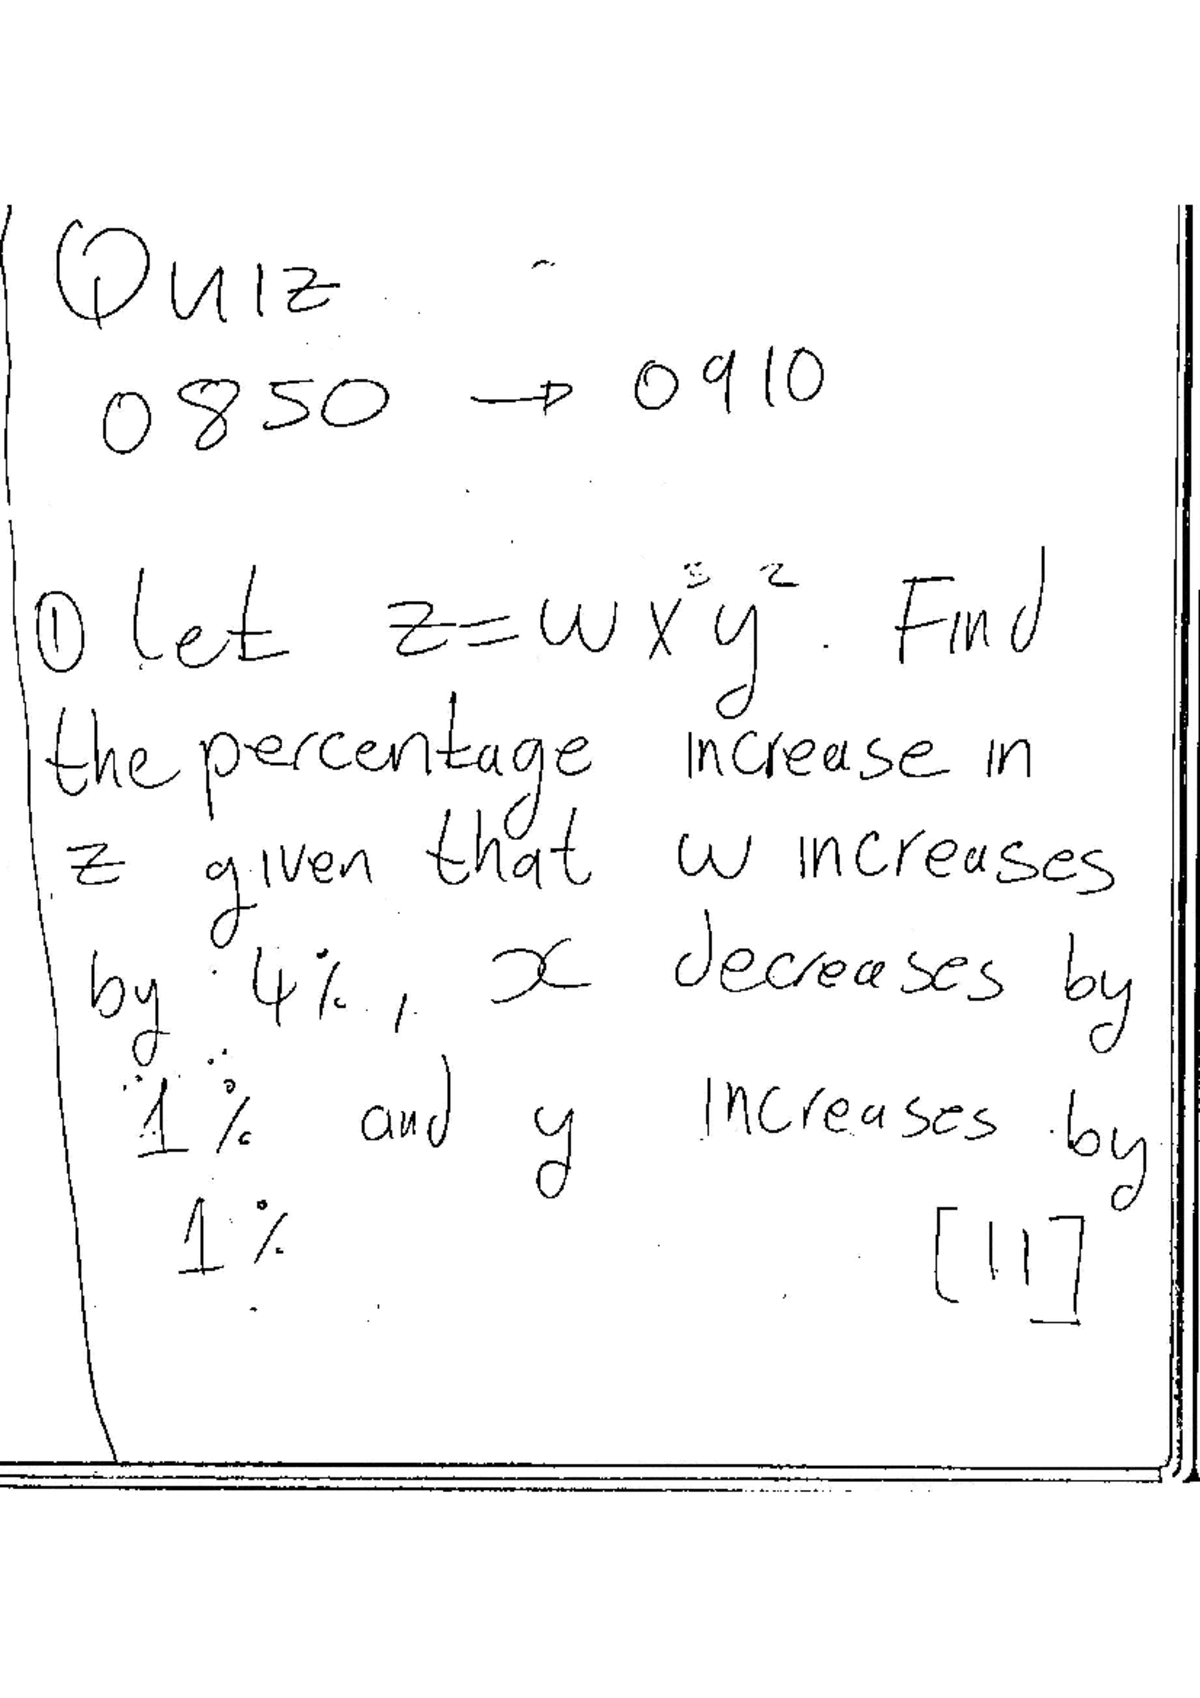 Quiz
0850 → 0910
① Let z=wx³y². Find
the percentage increase in
z given that w increases
by 4%, x decreases by
1% and y increases by
1% [11]